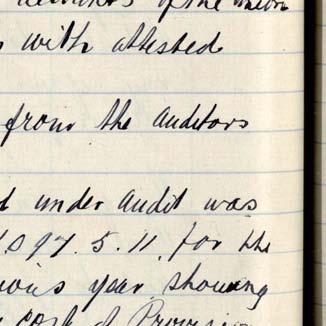 of the Union
with attested
from the Auditors
under Audit was
1.097.5.11. for the
ious year showing
cost of Provision